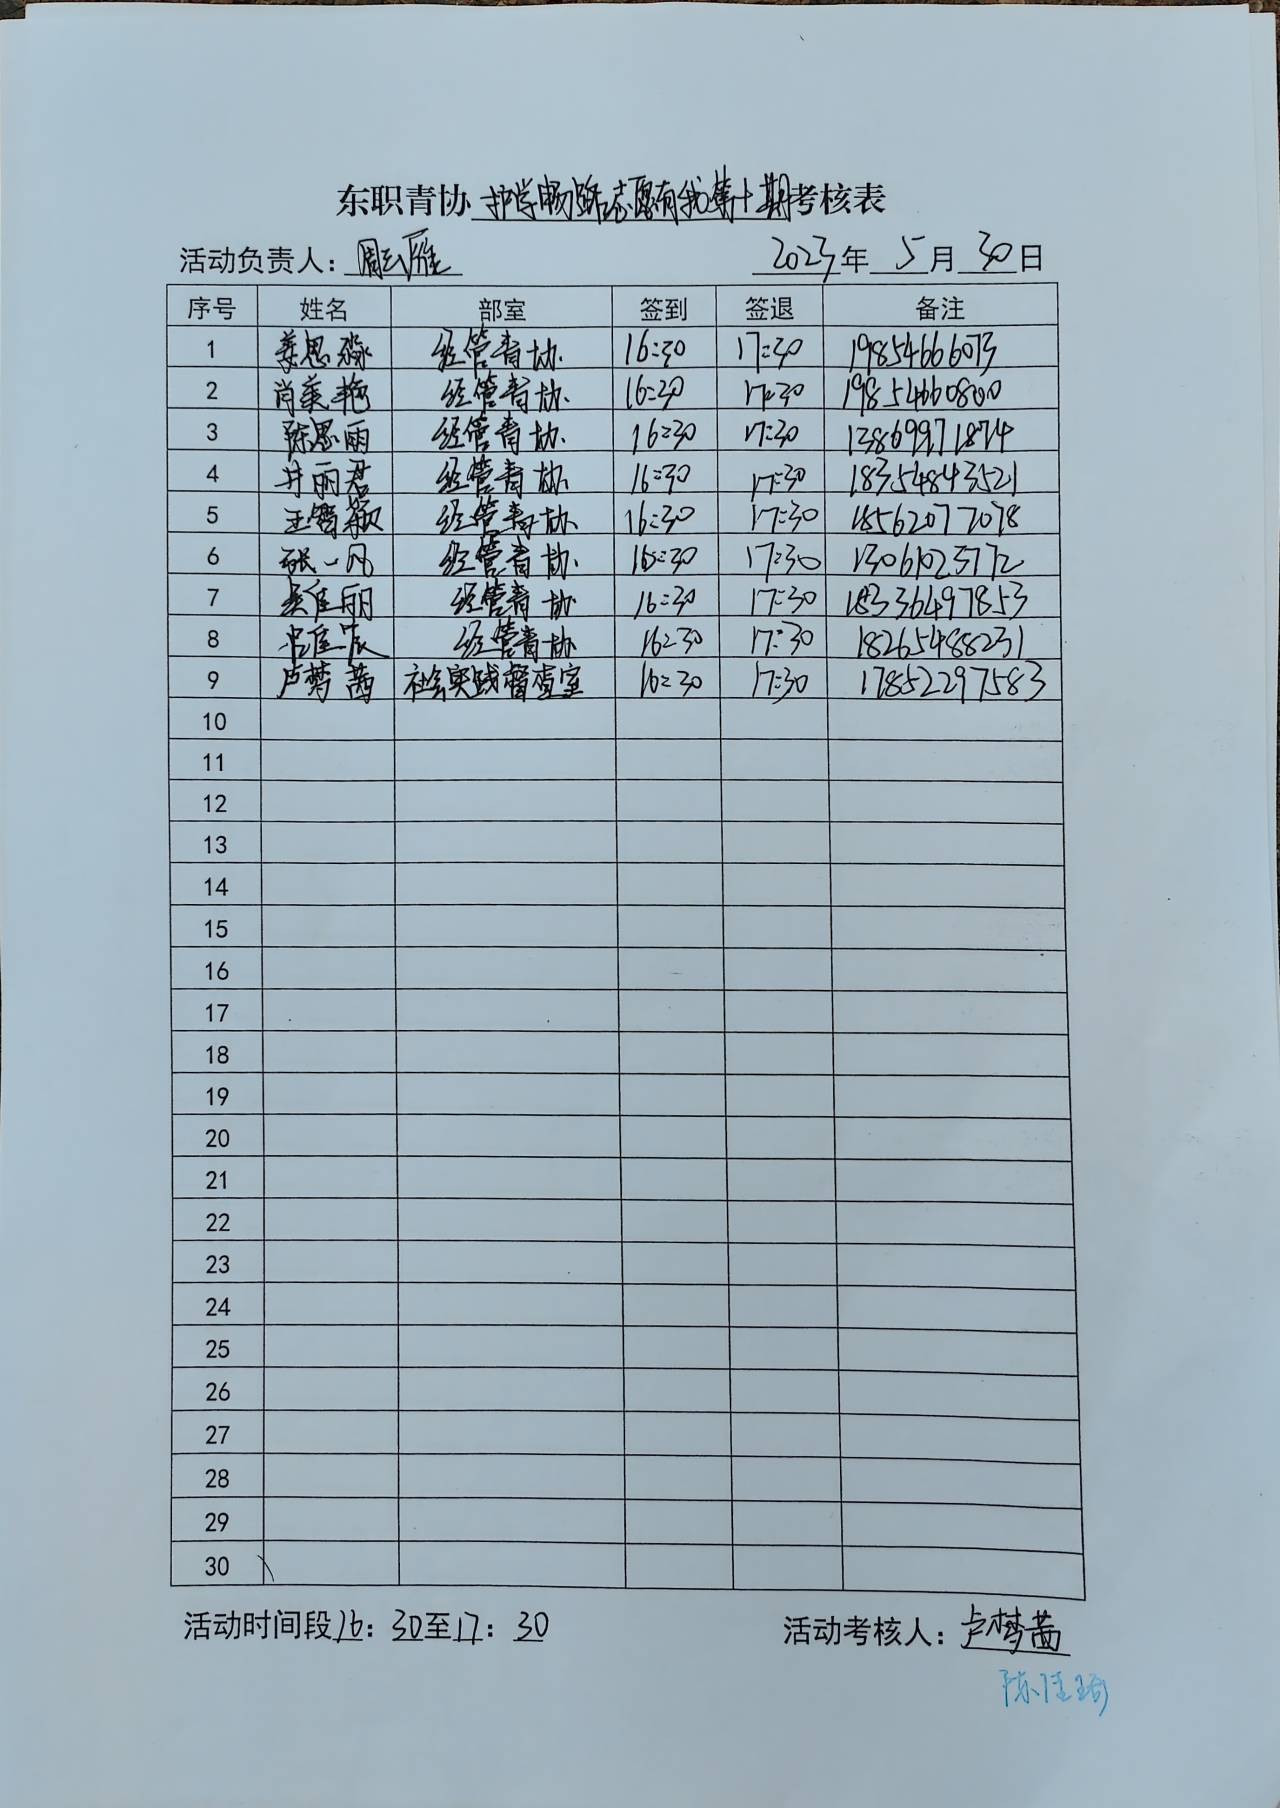 东职青协护学畅路志愿有我第十期考核表
活动负责人：周云雁 2023年5月30日
序号 姓名 部室 签到 签退 备注
1 姜思淼 经管青协 16:30 17:30 19854666073
2 肖美艳 经管青协 16:30 17:30 19854660800
3 陈思雨 经管青协 16:30 17:30 13869971874
4 井丽君 经管青协 16:30 17:30 18354843521
5 王智颖 经管青协 16:30 17:30 18562077078
6 张一凡 经管青协 16:30 17:30 13061023772
7 吴佳丽 经管青协 16:30 17:30 18336497853
8 经管青协 16:30 17:30 18265488231
9 卢梦茜 社会实践督查室 16:30 17:30 17852297583
10
11
12
13
14
15
16
17
18
19
20
21
22
23
24
25
26
27
28
29
30
活动时间段16：30至17：30 活动考核人：卢梦茜